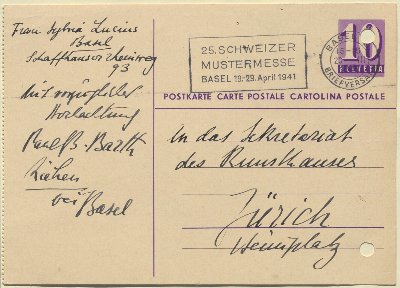 Frau Sylvia Lucius
Basel
Schaffhauser Rheinweg
93
Mit vorzüglicher
Hochachtung
Paul B. Barth
Riehen
bei Basel
25. SCHWEIZER
MUSTERMESSE
BASEL 19.-29. April 1941
BASEL
BRIEFVERSAND
10
HELVETIA
POSTKARTE CARTE POSTALE CARTOLINA POSTALE
An das Sekretariat
des Kunsthauses
Zürich
Heimplatz